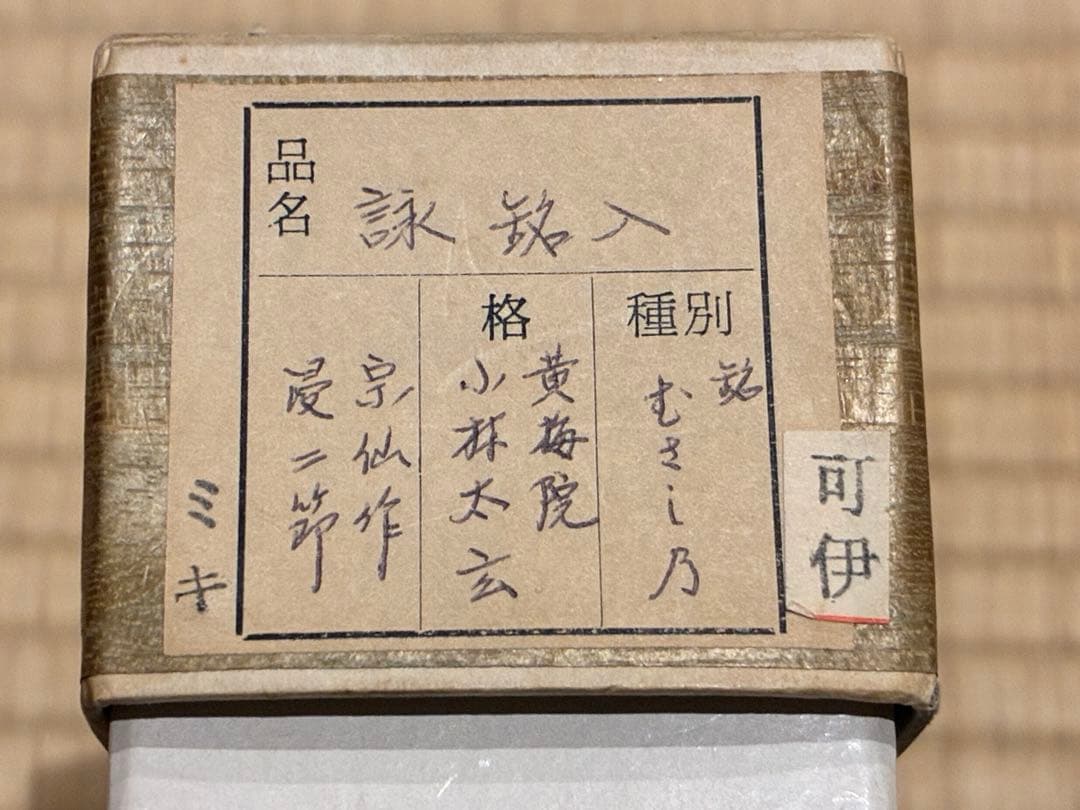 品名
詠銘入
種別
銘
むさし乃
格
黄梅院
小林太玄
宗仙作
二節
ミキ
可伊